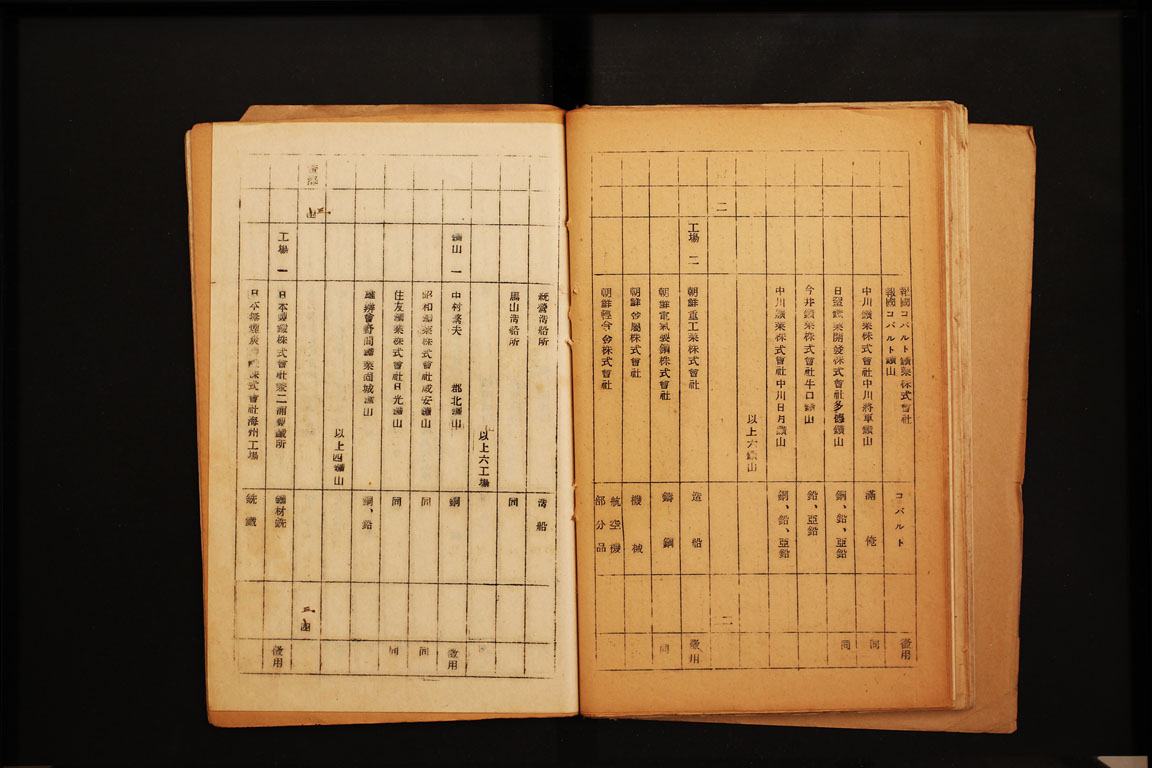 報國コバルト鑛業株式會社
報國コバルト鑛山
コバルト
徵用
中川鑛業株式會社中川將軍鑛山
滿俺
同
日窒鑛業開發株式會社多德鑛山
銅、鉛、亞鉛
同
今井鑛業株式會社牛口鑛山
鉛、亞鉛
中川鑛業株式會社中川日月鑛山
銅、鉛、亞鉛
以上六鑛山
二
二
工場 二
朝鮮重工業株式會社
造船
徵用
朝鮮電氣製鋼株式會社
鑄鋼
同
朝鮮合金屬株式會社
機械
朝鮮輕合金株式會社
航空機
部分品
統營造船所
造船
馬山造船所
同
以上六工場
鑛山 一
郡北鑛山
銅
徵用
昭和鑛業株式會社咸安鑛山
同
同
住友鑛業株式會社日光鑛山
同
同
固城鑛山
銅、鉛
以上四鑛山
工場 一
日本製鐵株式會社兼二浦製鐵所
鋼材銑
徵用
株式會社海州工場
銑鐵